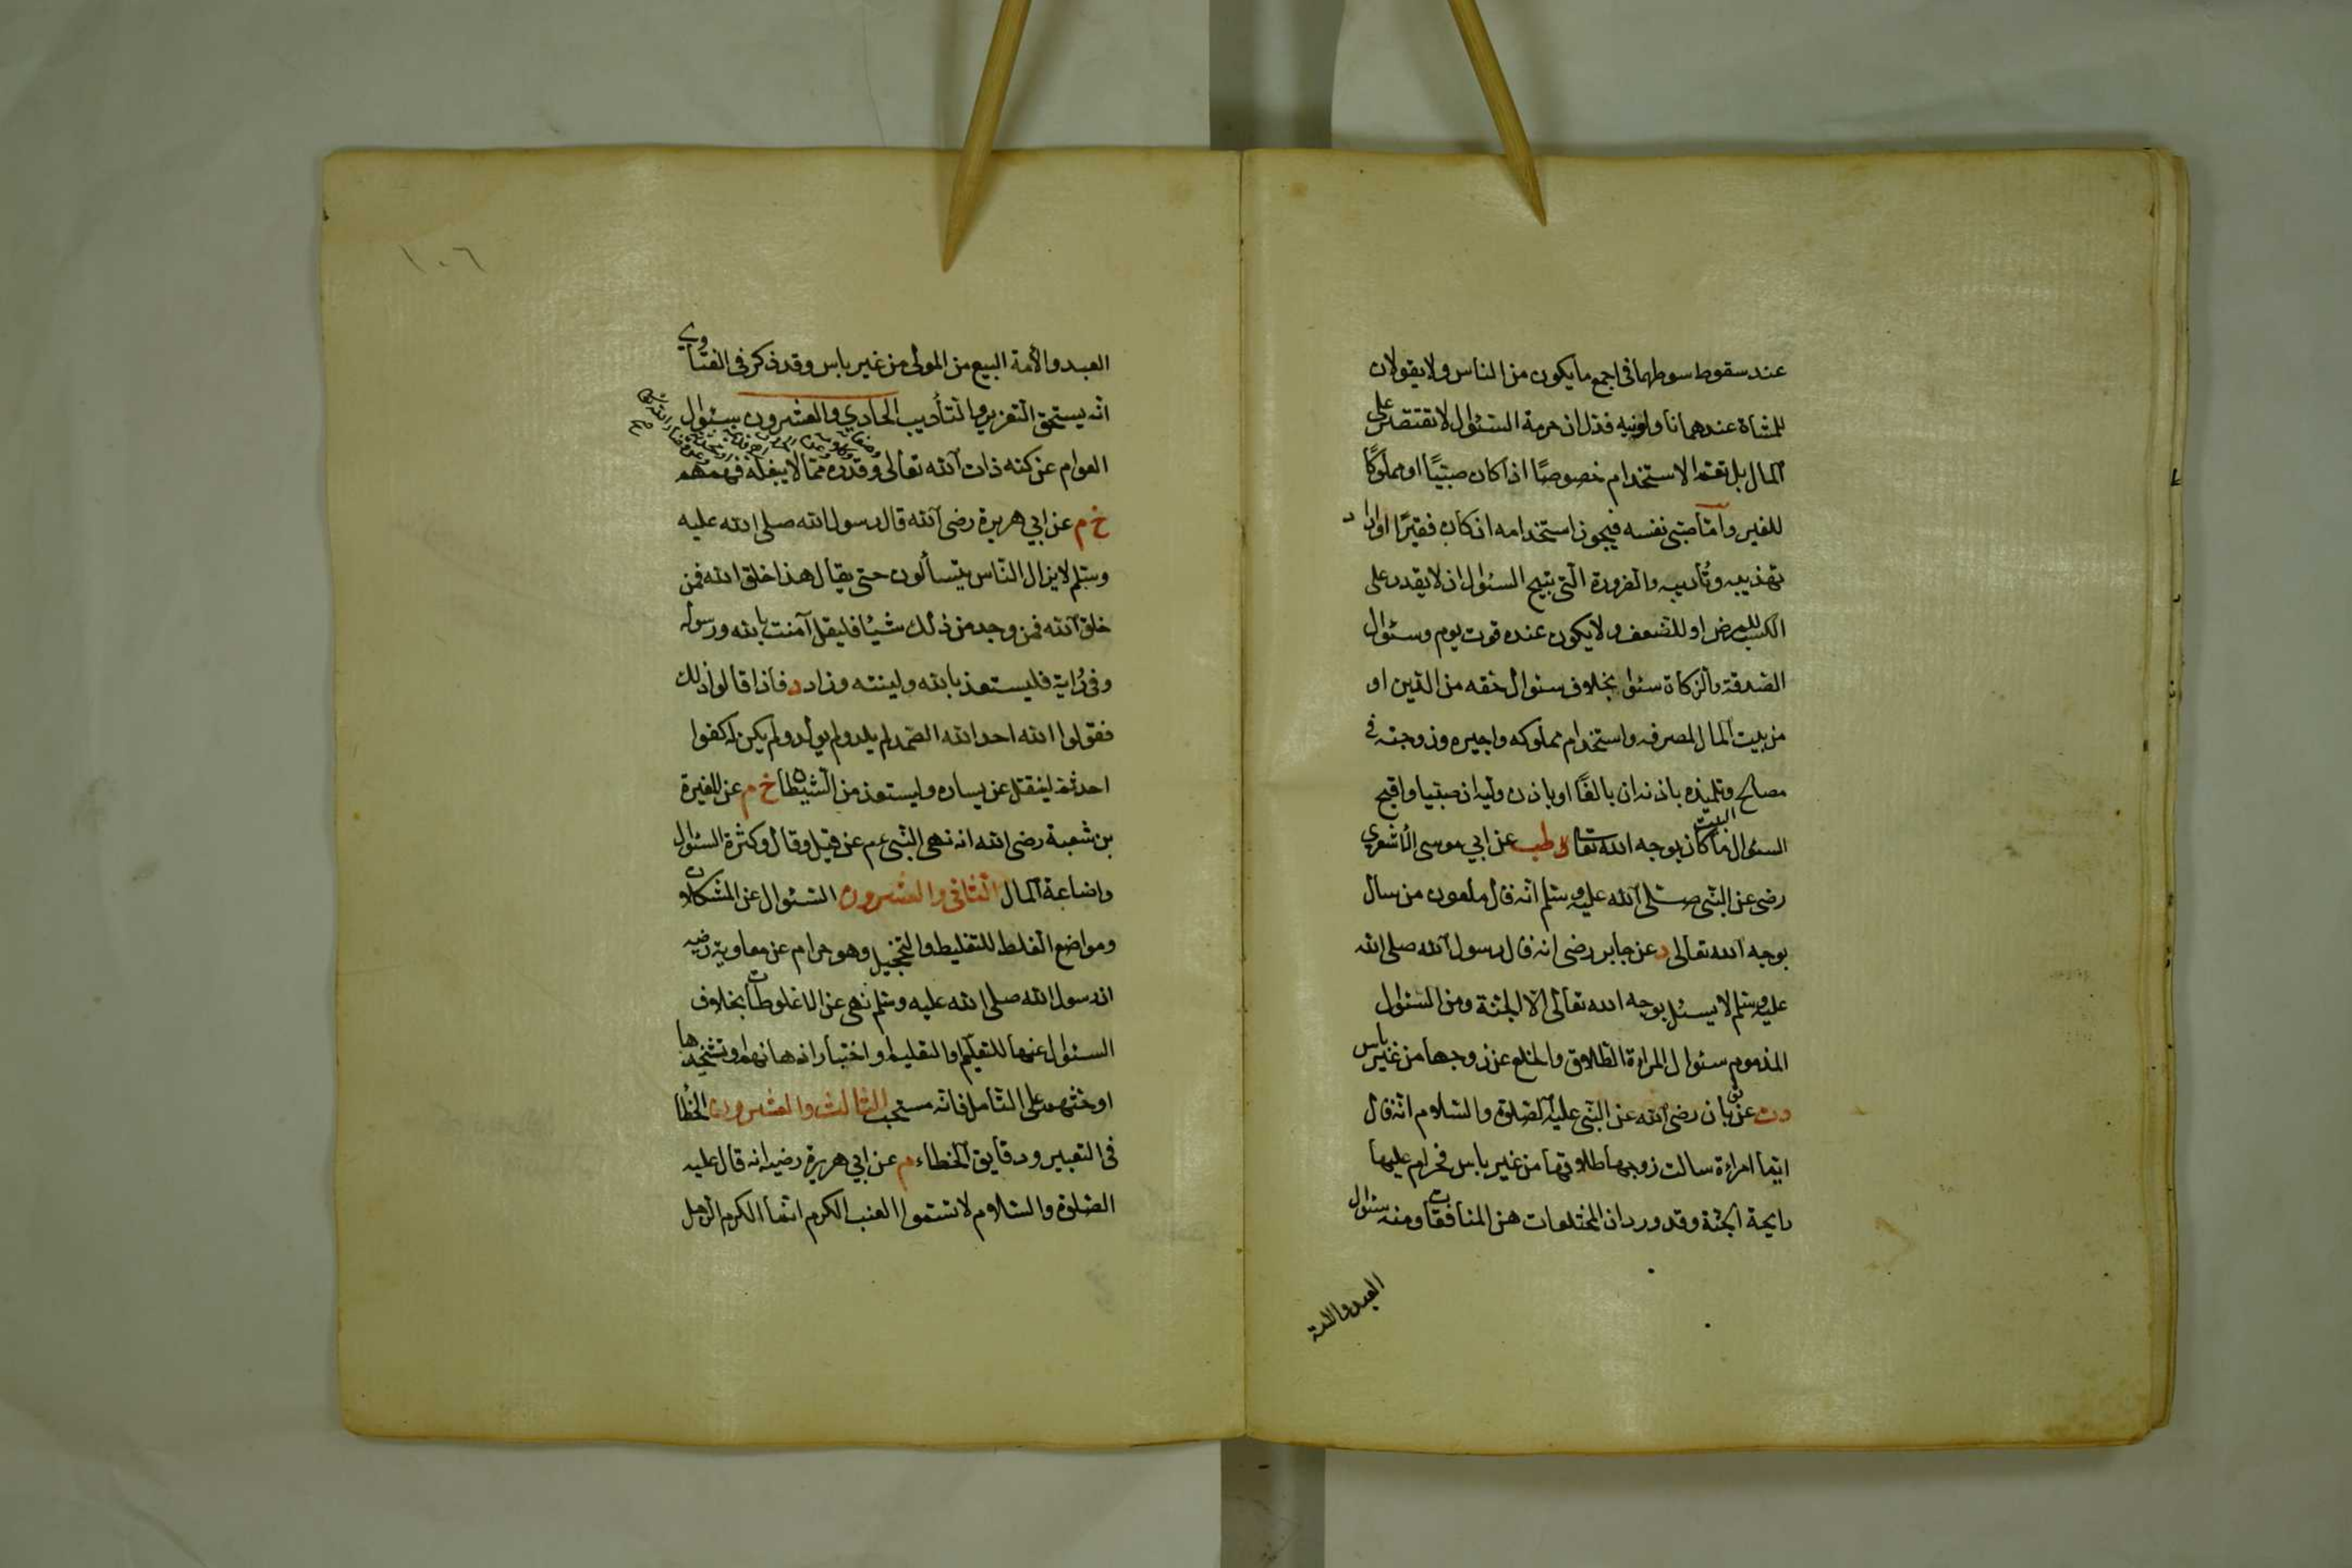 عند سقوط سوطهما فى اجمع ما يكون من الناس ولا يقولان
للمشاة عندهما ناولونيه فدل ان حرمة السئوال لا تقتصر على
المال بل تعم الاستخدام خصوصًا اذا كان صبيًا او مملوكًا
للغير وامّا صبى نفسه فيجوز استخدامه ان كان فقيرًا او اراد
تهذيبه وتأديبه والضرورة التى تبيح السئوال ان لا يقدر على
الكسب للمرض او للضعف ولا يكون عنده قوت يوم وسئوال
الصدقة والزكاة سئوا بخلاف سئوال حقه من الدين او
من بيت المال لمصرفه واستخدام مملوكه واجيره وزوجته فى
مصالح البيت وتلميذه باذنه ان بالغًا او باذن وليه ان صبيا واقبح
السئوال ما كان بوجه الله تعالى طب عن ابي موسى الأشعري
رضى عن النبى صلى الله عليه وسلم انه قال ملعون من سال
بوجه الله تعالى د عن جابر رضى انه قال رسول الله صلى الله
عليه وسلم لا يسئل بوجه الله تعالى الا الجنة ومن السئوال
المذموم سئوال المراة الطلاق والخلع عن زوجها من غير باس
دت عن ثوبان رضى الله عن النبى عليه الصلوة والسلام انه قال
ايما امراءة سالت زوجها طلاقها من غير باس فحرام عليها
رايحة الجنة وقد ورد ان المختلعات هن المنافقات ومنه سئوال
العبد والامة
١٠٦
العبد والأمة البيع من المولى من غير باس وقد ذكر فى الفتاوي
انه يستحق التعزير والتأديب الحادي والعشرون سئوال
العوام عن كنه ذات الله تعالى وقدره مما لا يبلغه فهمهم
خ م عن ابي هريرة رضى الله قال رسول الله صلى الله عليه
وسلم لا يزال الناس يتسألون حتى يقال هذا خلق الله فمن
خلق الله فمن وجد من ذلك شيئا فليقل آمنت بالله ورسوله
وفى رُاية فليستعذ بالله ولينته وزاد د فاذا قالوا ذلك
فقولوا الله احد الله الصمد لم يلد ولم يولد ولم يكن له كفوا
احد ثم لينفتل عن يساره وليستعذ من الشيطان خ م عن المغيرة
بن شعبة رضى الله انه نهى النبى عم عن قيل وقال وكثرة السئوال
واضاعة المال الثانى والعشرون السئوال عن المشكلات
ومواضع الغلط للتغليط والتخجيل وهو حرام عن معاوية رضيه
ان رسول الله صلى الله عليه وسلم نهى عن الاغلوطات بخلاف
السئوال عنها للتعلم والتعليم واختبار اذهانهم او تشحيذها
او حثهم على التأمل فانه مستحب الثالث والعشرون الخطأ
فى التعبير ودقايق الخطاء م عن ابي هريرة رضيه انه قال عليه
الصلوة والسلام لا تسموا العنب الكرم انما الكرم الرجل